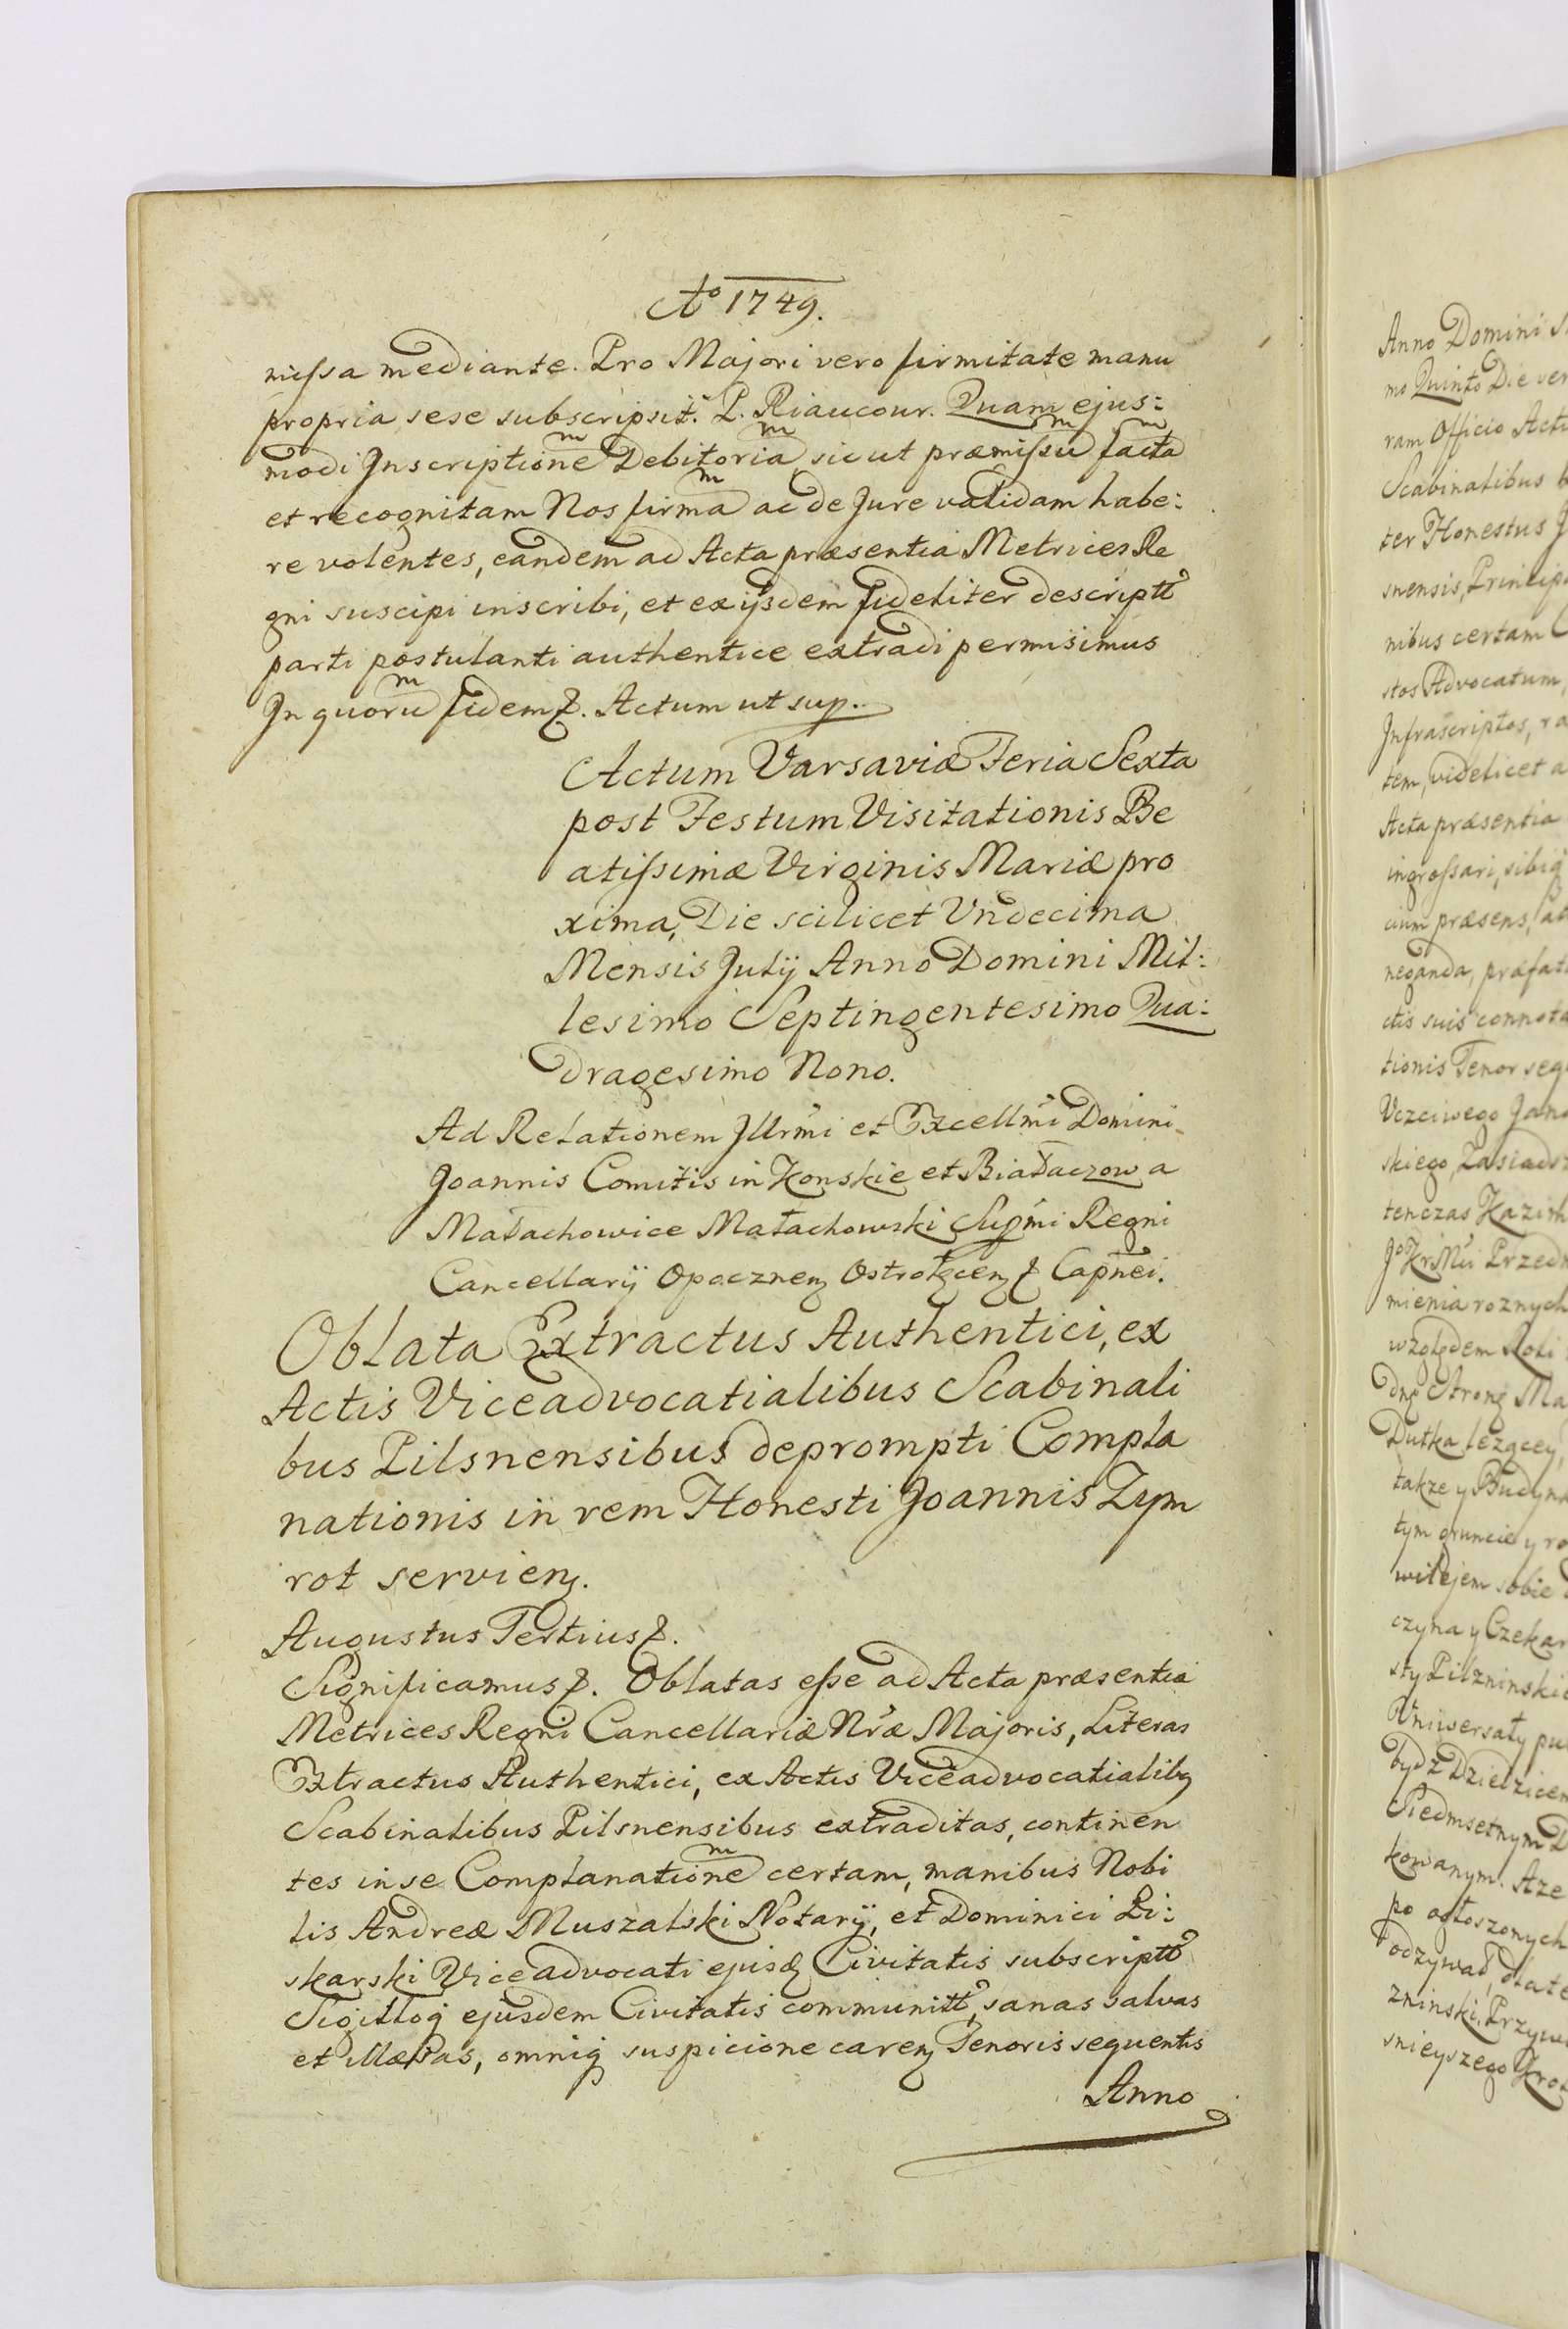 Aº 1749.
missa mediante. Pro Majori vero firmitate manu
propria sese subscripsit. P. Riaucour. Quam ejus:
modi Inscriptionem Debitoriam, sicut præmissum factam
et recognitam Nos firmam ac de Jure validam habe:
re volentes, eandem ad Acta præsentia Metrices Re
gni suscipi inscribi, et ex ijsdem fideliter descriptt
parti postulanti authentice extradi permisimus
In quorum fidem &. Actum ut sup.
Actum Varsaviæ Feria Sexta
post Festum Visitationis Be
atissimæ Virginis Mariæ pro
xima, Die scilicet Vndecima
Mensis Julÿ Anno Domini Mil:
lesimo Septingentesimo Qua:
dragesimo Nono.
Ad Relationem Illrmi et Excellmi Domini
Joannis Comitis in Konskie et Białaczow a
Małachowice Małachowski Supmi Regni
Cancellarÿ Opocznen Ostrołęcen & Capnei.
Oblata Extractus Authentici, ex
Actis Viceadvocatialibus Scabinali
bus Pilsnensibus deprompti Compla
nationis in rem Honesti Joannis Zym
rot servien.
Augustus Tertius &.
Significamus &. Oblatas esse ad Acta præsentia
Metrices Regni Cancellariæ Nræ Majoris, Literas
Extractus Authentici, ex Actis Viceadvocatialibq
Scabinalibus Pilsnensibus extraditas, continen
tes in se Complanationem certam, manibus Nobi
lis Andreæ Muszalski Notarÿ, et Dominici Pi:
skarski Viceadvocati ejusd Civitatis subscriptt
Sigilloq ejusdem Civitatis communitt, sanas salvas
et illæsas, omniq suspicione caren Tenoris sequentis
Anno
Anno Domini
mo Quinto Die ver
ram Officio Act
Scabinalibus
ter Honestus
snensis, Princip
nibus certam
stos Advocatum,
Infrascriptos, ra
tem, videlicet a
Acta præsentia
ingrossari, sibiq
cium præsens,
neganda, præfat
ctis suis connota
tionis Tenor seq
Vczciwego Jan
skiego, Zasiadz
tenczas Kazim
Jº Kr Mci Przed
mienia roznych
względem Roli
dnę Stronę Ma
Dutka lezącey,
takze y Budyn
tym gruncie y ro
wilejem sobie
czyna y Czekar
sty Pilzninski
Vniwersały pu
bydź Dziedzicem
Siedmsetnym
kowanym. Aze
po ogłoszonych
odzywał, dlate
zninski, Przyw
snieyszego Kro